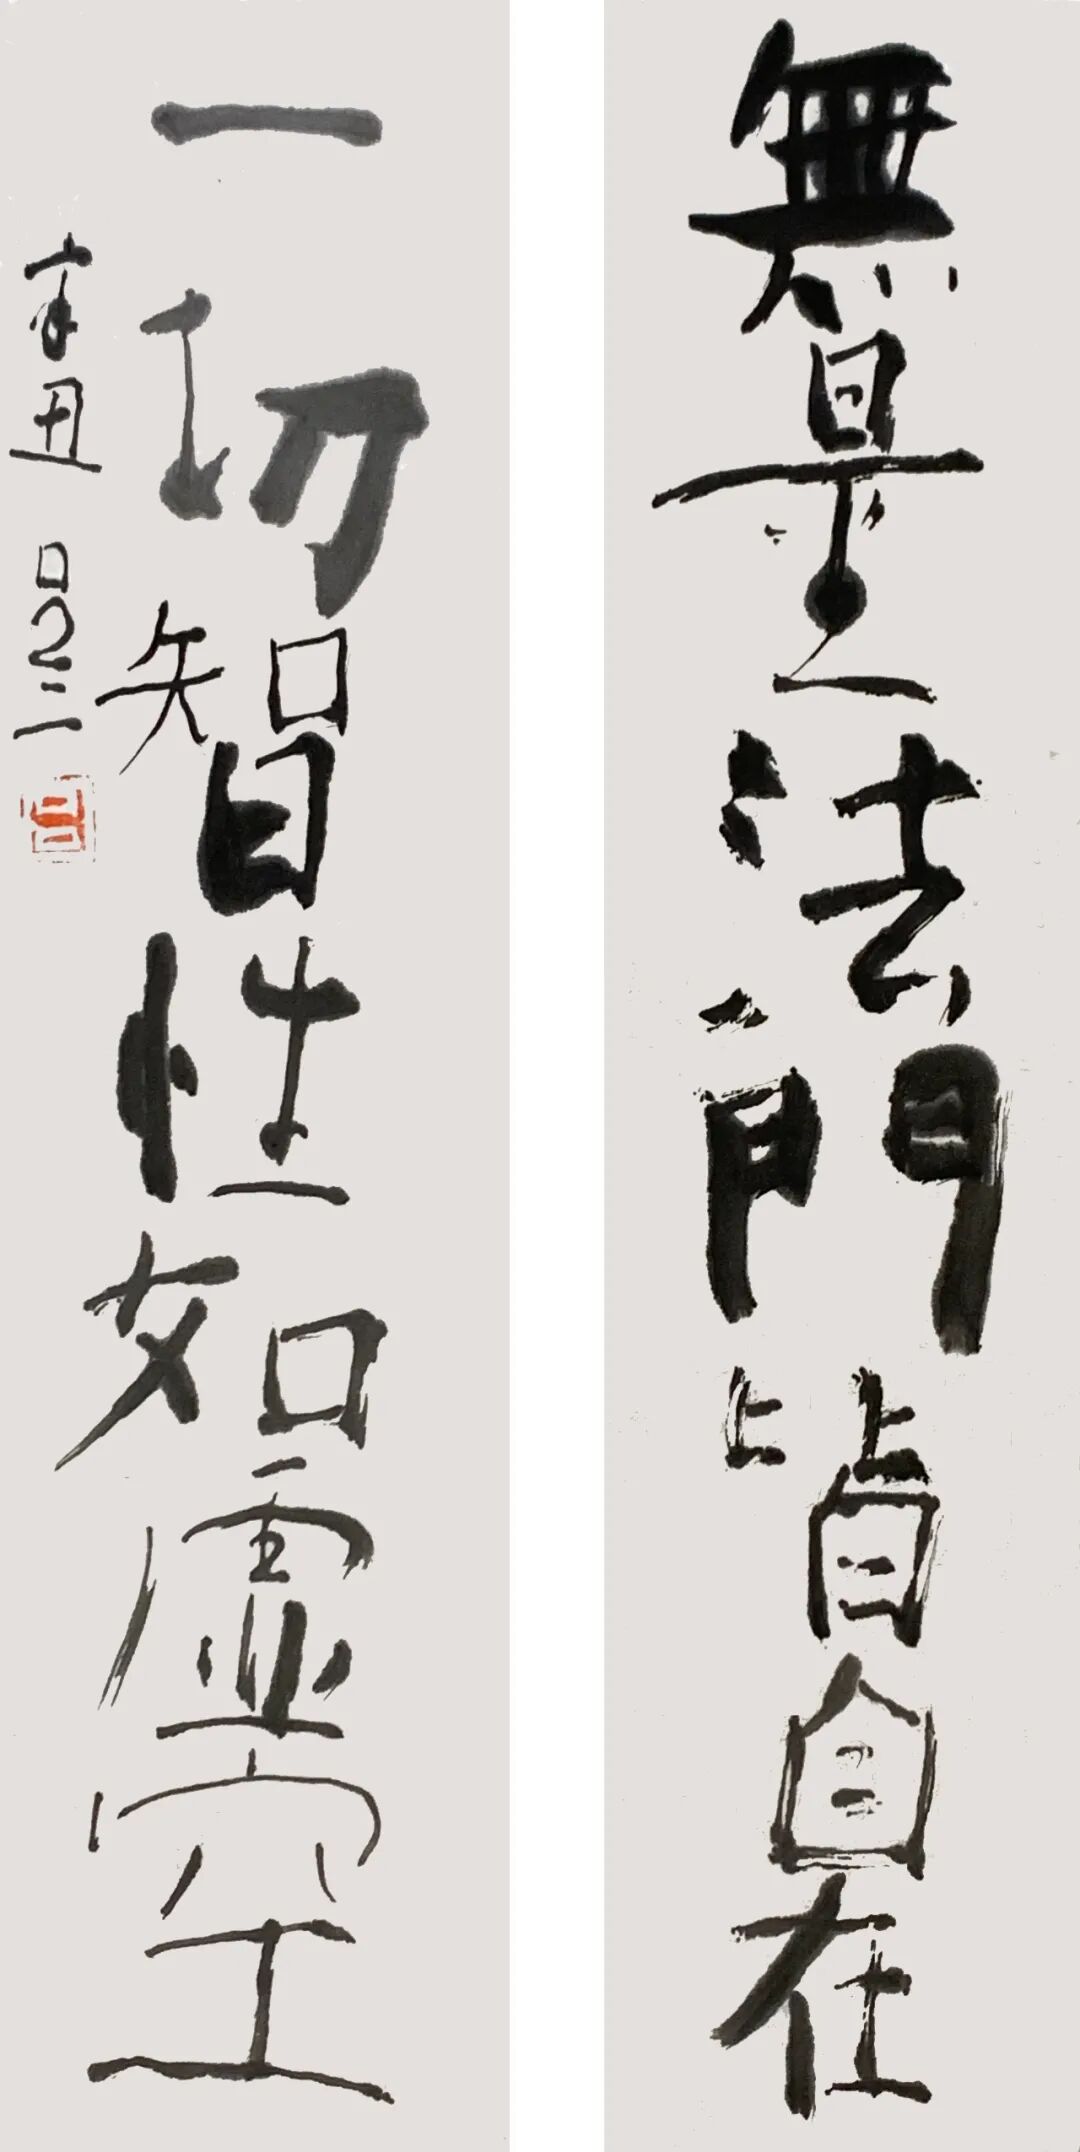 無量法門皆自在
一切智性如虛空
辛丑